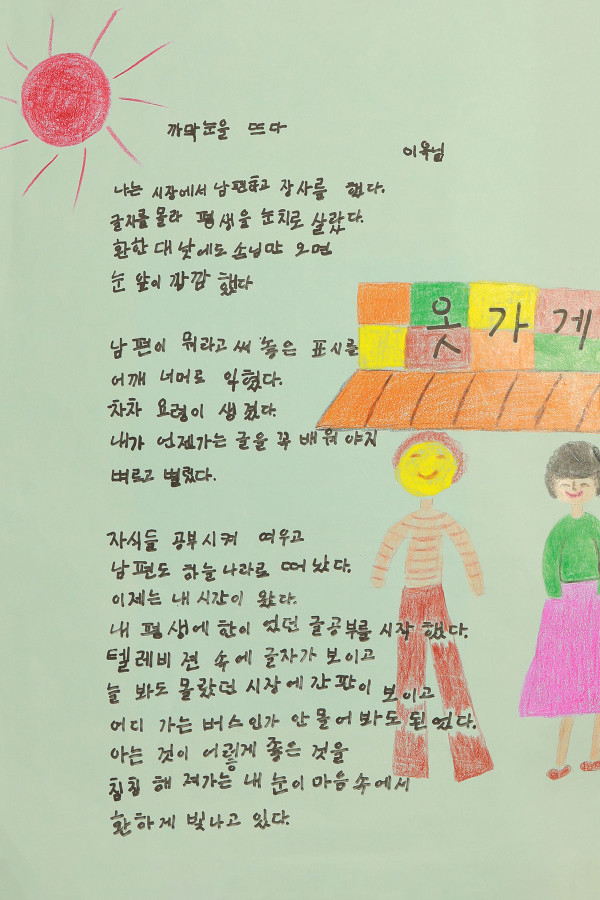 까막눈을 뜨다
이옥님
나는 시장에서 남편하고 장사를 했다.
글자를 몰라 평생을 눈치로 살랐다.
환한 대낮에도 손님만 오면
눈 앞이 깜깜 했다
남편이 뭐라고 써 놓은 표시를
어깨 너머로 익혔다.
차차 요령이 생겼다.
내가 언젠가는 글을 꼭 배워야지
벼르고 별렀다.
자식들 공부시켜 여우고
남편도 하늘나라로 떠났다.
이제는 내 시간이 왔다.
내 평생에 한이 었던 글공부를 시작했다.
텔레비젼 속에 글자가 보이고
늘 봐도 몰랐던 시장에 간판이 보이고
어디 가는 버스인가 안 물어봐도 된 었다.
아는 것이 이렇게 좋은 것을
침침 해 져가는 내 눈이 마음속에서
환하게 빛나고 있다.
옷가게